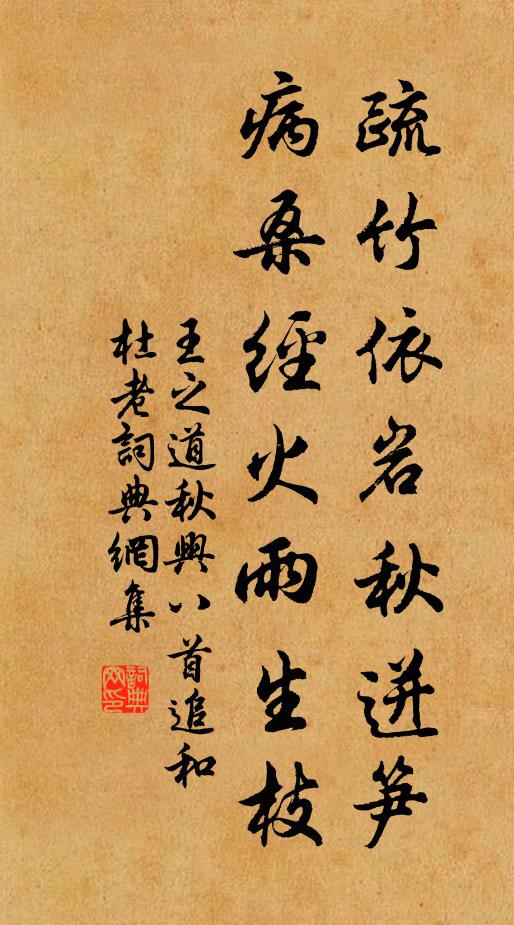 疏竹依岩秋迸笋
病桑經火雨生枝
王之道秋興八首追和
杜老詞典網集
詞典
网印